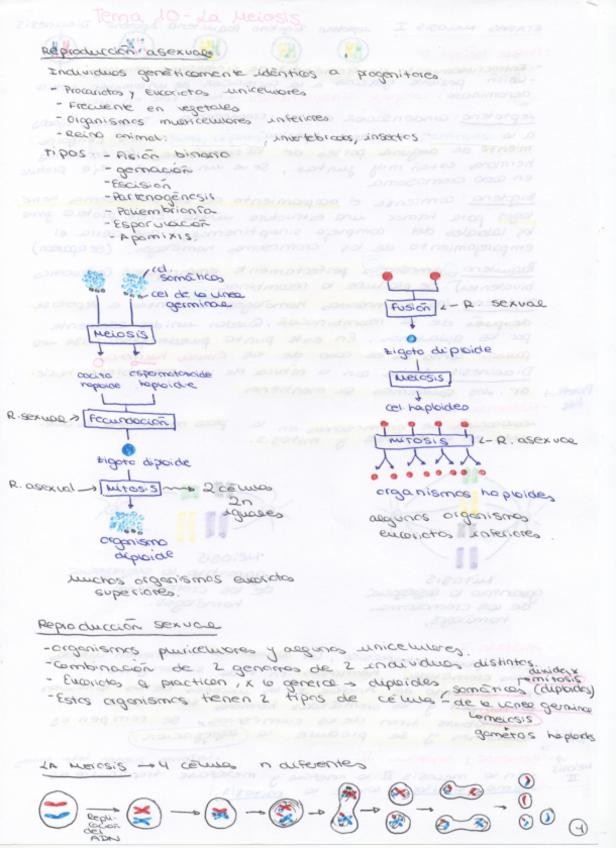 Tema 10 - La Meiosis
Reproducción asexual
Individuos genéticamente idénticos a progenitores
- Procariotas y Eucariotas unicelulares
- Frecuente en vegetales
- Organismos multicelulares inferiores
- Reino animal: invertebrados, insectos
Tipos - Fisión binaria
- gemación
- Escisión
- Partenogénesis
- Poliembrionía
- Esporulación
- Apomixis.
cel.
somáticas
cel de la línea
germinal
Meiosis
oocito espermatozoide
haploide haploide
R. sexual → Fecundación
zigoto diploide
R. asexual → Mitosis → 2 células
2n
iguales
organismo
diploide
Muchos organismos eucariotas
superiores.
Fusión ← R. sexual
zigoto diploide
Meiosis
cel. haploides
MITOSIS ← R. asexual
organismos haploides
algunos organismos
eucariotas inferiores.
Reproducción sexual
- organismos pluricelulares y algunos unicelulares.
- Combinación de 2 genomas de 2 individuos distintos
- Eucariotas q practican, x lo general → diploides
- Estos organismos tienen 2 tipos de célula
dividen x
mitosis
somáticas (diploides)
de la línea germinal
meiosis
gametos haploids
LA Meiosis → 4 células n diferentes
Repli-
cación
del
ADN